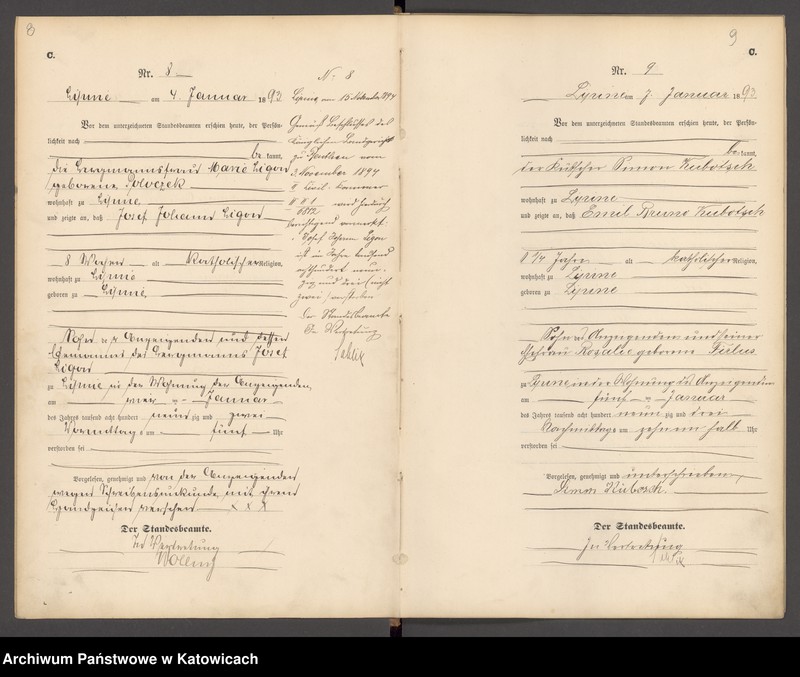 8
C.
Nr. 8
am 4. Januar 1893
Vor dem unterzeichneten Standesbeamten erschien heute, der Persön-
lichkeit nach
be kannt,
die Bergmannsfrau Marie Ligon
geborene
wohnhaft zu
und zeigte an, daß Josef Johann Ligon
8 Wochen alt katholischer Religion,
wohnhaft zu
geboren zu
Sohn der Anzeigenden und dessen
Ehemannes des Bergmanns Josef
Ligon
zu in der Wohnung der Anzeigenden,
am vier ten Januar
des Jahres tausend acht hundert neun zig und zwei
Vormittags um fünf Uhr
verstorben sei
Vorgelesen, genehmigt und von der Anzeigenden
wegen Schreibensunkunde mit ihrem
Handzeichen versehen x x x
Der Standesbeamte.
In Vertretung
No 8
am 13. November 1894
Gemäß Beschlusses des
Königlichen Landgerichts
zu Beuthen vom
3. November 1894
II Civil Kammer
wird hierdurch
berichtigend vermerkt:
Josef Johann Ligon
ist im Jahre tausend
achthundert neun-
zig und drei (nicht
zwei) verstorben
Der Standesbeamte
In Vertretung
9
C.
Nr. 9
am 7. Januar 1893
Vor dem unterzeichneten Standesbeamten erschien heute, der Persön-
lichkeit nach
be kannt,
der Kutscher Simon Kubotsch
wohnhaft zu
und zeigte an, daß Emil Bruno Kubotsch
1 1/4 Jahre alt katholischer Religion,
wohnhaft zu
geboren zu
Sohn des Anzeigenden und seiner
Ehefrau Rosalie geborene
zu in der Wohnung des Anzeigenden
am fünf ten Januar
des Jahres tausend acht hundert neun zig und drei
Nachmittags um zehn ein halb Uhr
verstorben sei
Vorgelesen, genehmigt und unterschrieben
Der Standesbeamte.
In Vertretung
Archiwum Państwowe w Katowicach